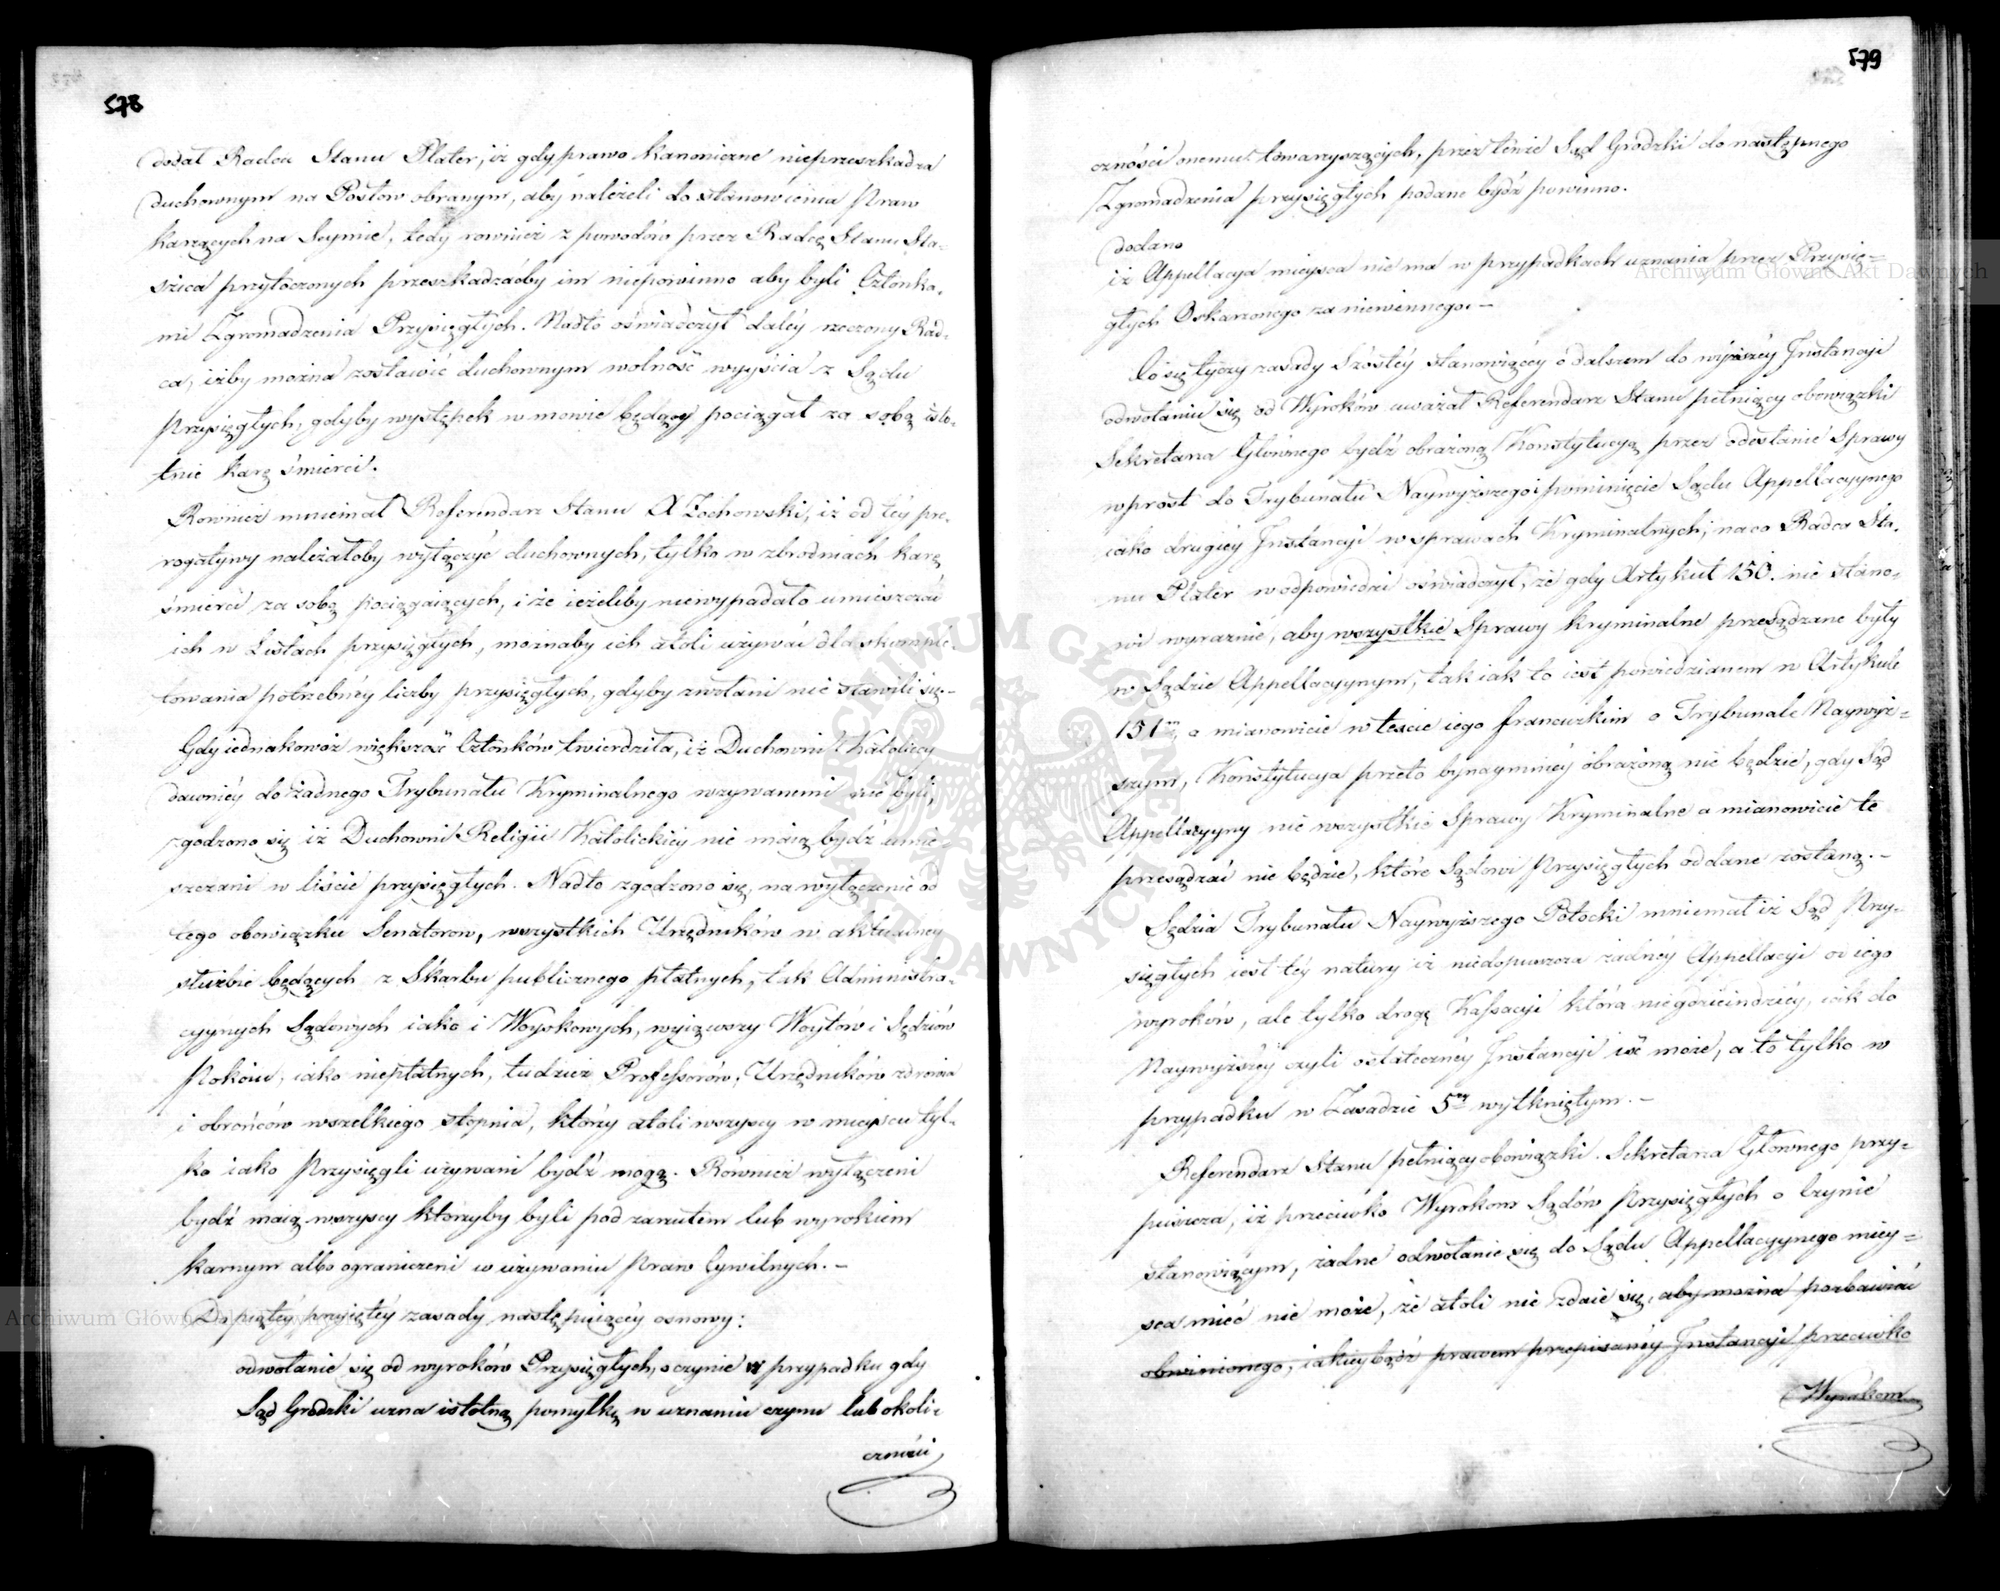 578
dodał Radca Stanu Plater, iż gdy prawo kanoniczne nieprzeszkadza
duchownym na Posłow obranym, aby należeli do stanowienia Praw
karzących na Seymie, tedy rownież z powodów przez Radcę Stanu Sta-
szica przytoczonych przeszkadzaćby im niepowinno aby byli Członka-
mi Zgromadzenia Przysięgłych. Nadto oświadczył daléy rzeczony Rad-
ca, iżby można zostawić duchownym wolność wyyścia z Sądu
Przysięgłych, gdyby występek w mowie będący pociągał za sobą isto-
tnie karę śmierci.
Rownież mniemał Referendarz Stanu X Zochowski, iż od téy pre-
rogatywy należałoby wyłączyć duchownych, tylko w zbrodniach karę
śmierci za sobą pociągaiących, i że ieżeliby niewypadało umieszczać
ich w Listach przysięgłych, możnaby ich atoli używać dla skomple-
towania potrzebnéy liczby przysięgłych, gdyby zwołani nie stawili się.-
Gdy iednakowoż większość Członków twierdziła, iż Duchowni Katoliccy
dawniéy do żadnego Trybunału Kryminalnego wzywanemi nie byli,
zgodzono się iż Duchowni Religii Katolickiéy nie maią bydź umie-
szczani w liście przysięgłych. Nadto zgodzono się, na wyłączenie od
tego obowiązku Senatorow, wszystkich Urzędników w aktualnéy
służbie będących z Skarbu publicznego płatnych, tak Administra-
cyynych Sądowych iako i Woyskowych, wyiąwszy Woytów i Sędziów
Pokóiu, iako niepłatnych, tudzież Professorów, Urzędników zdrowia
i obrońców wszelkiego stopnia, którzy atoli wszyscy w mieyscu tyl-
ko iako Przysięgli używani bydź mogą. Rownież wyłączeni
bydź maią wszyscy którzyby byli pod zarzutem lub wyrokiem
karnym albo ograniczeni w używaniu Praw Cywilnych. -
Do piątéy przyiętéy zasady następuiącéy osnowy:
odwołanie się od wyroków Przysięgłych, o czynie w przypadku gdy
Sąd Grodzki uzna istotną pomyłkę w uznaniu czynu lub okoli-
czności
579
czności onemu towarzyszących, przez tenże Sąd Grodzki do następnego
Zgromadzenia przysięgłych podane bydź powinno.
dodano
iż Appellacya mieysca nie ma w przypadkach uznania przez Przysię=
głych Oskarzonego za niewinnego. -
Co się tyczy zasady Szóstéy stanowiącéy o dalszem do wyższéy Instancyi
odwołaniu się od Wyroków uważał Referendarz Stanu pełniący obowiązki
Sekretarza Głównego bydź obrażoną Konstytucyą przez odesłanie Sprawy
wprost do Trybunału Naywyższego i pominięcie Sądu Appellacyynego
iako drugiéy Instancyi w sprawach Kryminalnych; na co Radca Sta-
nu Plater w odpowiedzi oświadczył, że gdy Artykuł 150. nie stano-
wi wyraznie, aby wszystkie Sprawy kryminalne przesądzane były
w Sądzie Appellacyynym, tak iak to iest powiedzianem w Artykule
151m, a mianowicie w texcie iego francuzkim o Trybunale Naywyż=
szym, Konstytucya przeto bynaymniéy obrażoną nie będzie, gdy Sąd
Appellacyyny nie wszystkie Sprawy Kryminalne a mianowicie te
przesądzać nie będzie, które Sądowi Przysięgłych oddane zostaną. -
Sędzia Trybunału Naywyższego Potocki mniemał iż Sąd Przy-
sięgłych iest téy natury iż niedopuszcza żadnéy Appellacyi od iego
wyroków, ale tylko drogę Kassacyi która niegdzieindziéy, iak do
Naywyższéy czyli ostatecznéy Instancyi iść może, a to tylko w
przypadku w Zasadzie 5éy wytkniętym. -
Referendarz Stanu pełniący obowiązki Sekretarza Głownego przy-
puszcza, iż przeciwko Wyrokom Sądów Przysięgłych o Czynie
stanowiącym, żadne odwołanie się do Sądu Appellacyynego miey=
sca mieć nie może, że atoli nie zdaie się, aby można pozbawiać
obwinionego, iakieybądź prawem przepisanéy Instancyi przeciwko
Wyrokom
Archiwum Główne Akt Dawnych
Archiwum Główne Akt Dawnych
ARCHIWUM GŁÓWNE AKT DAWNYCH